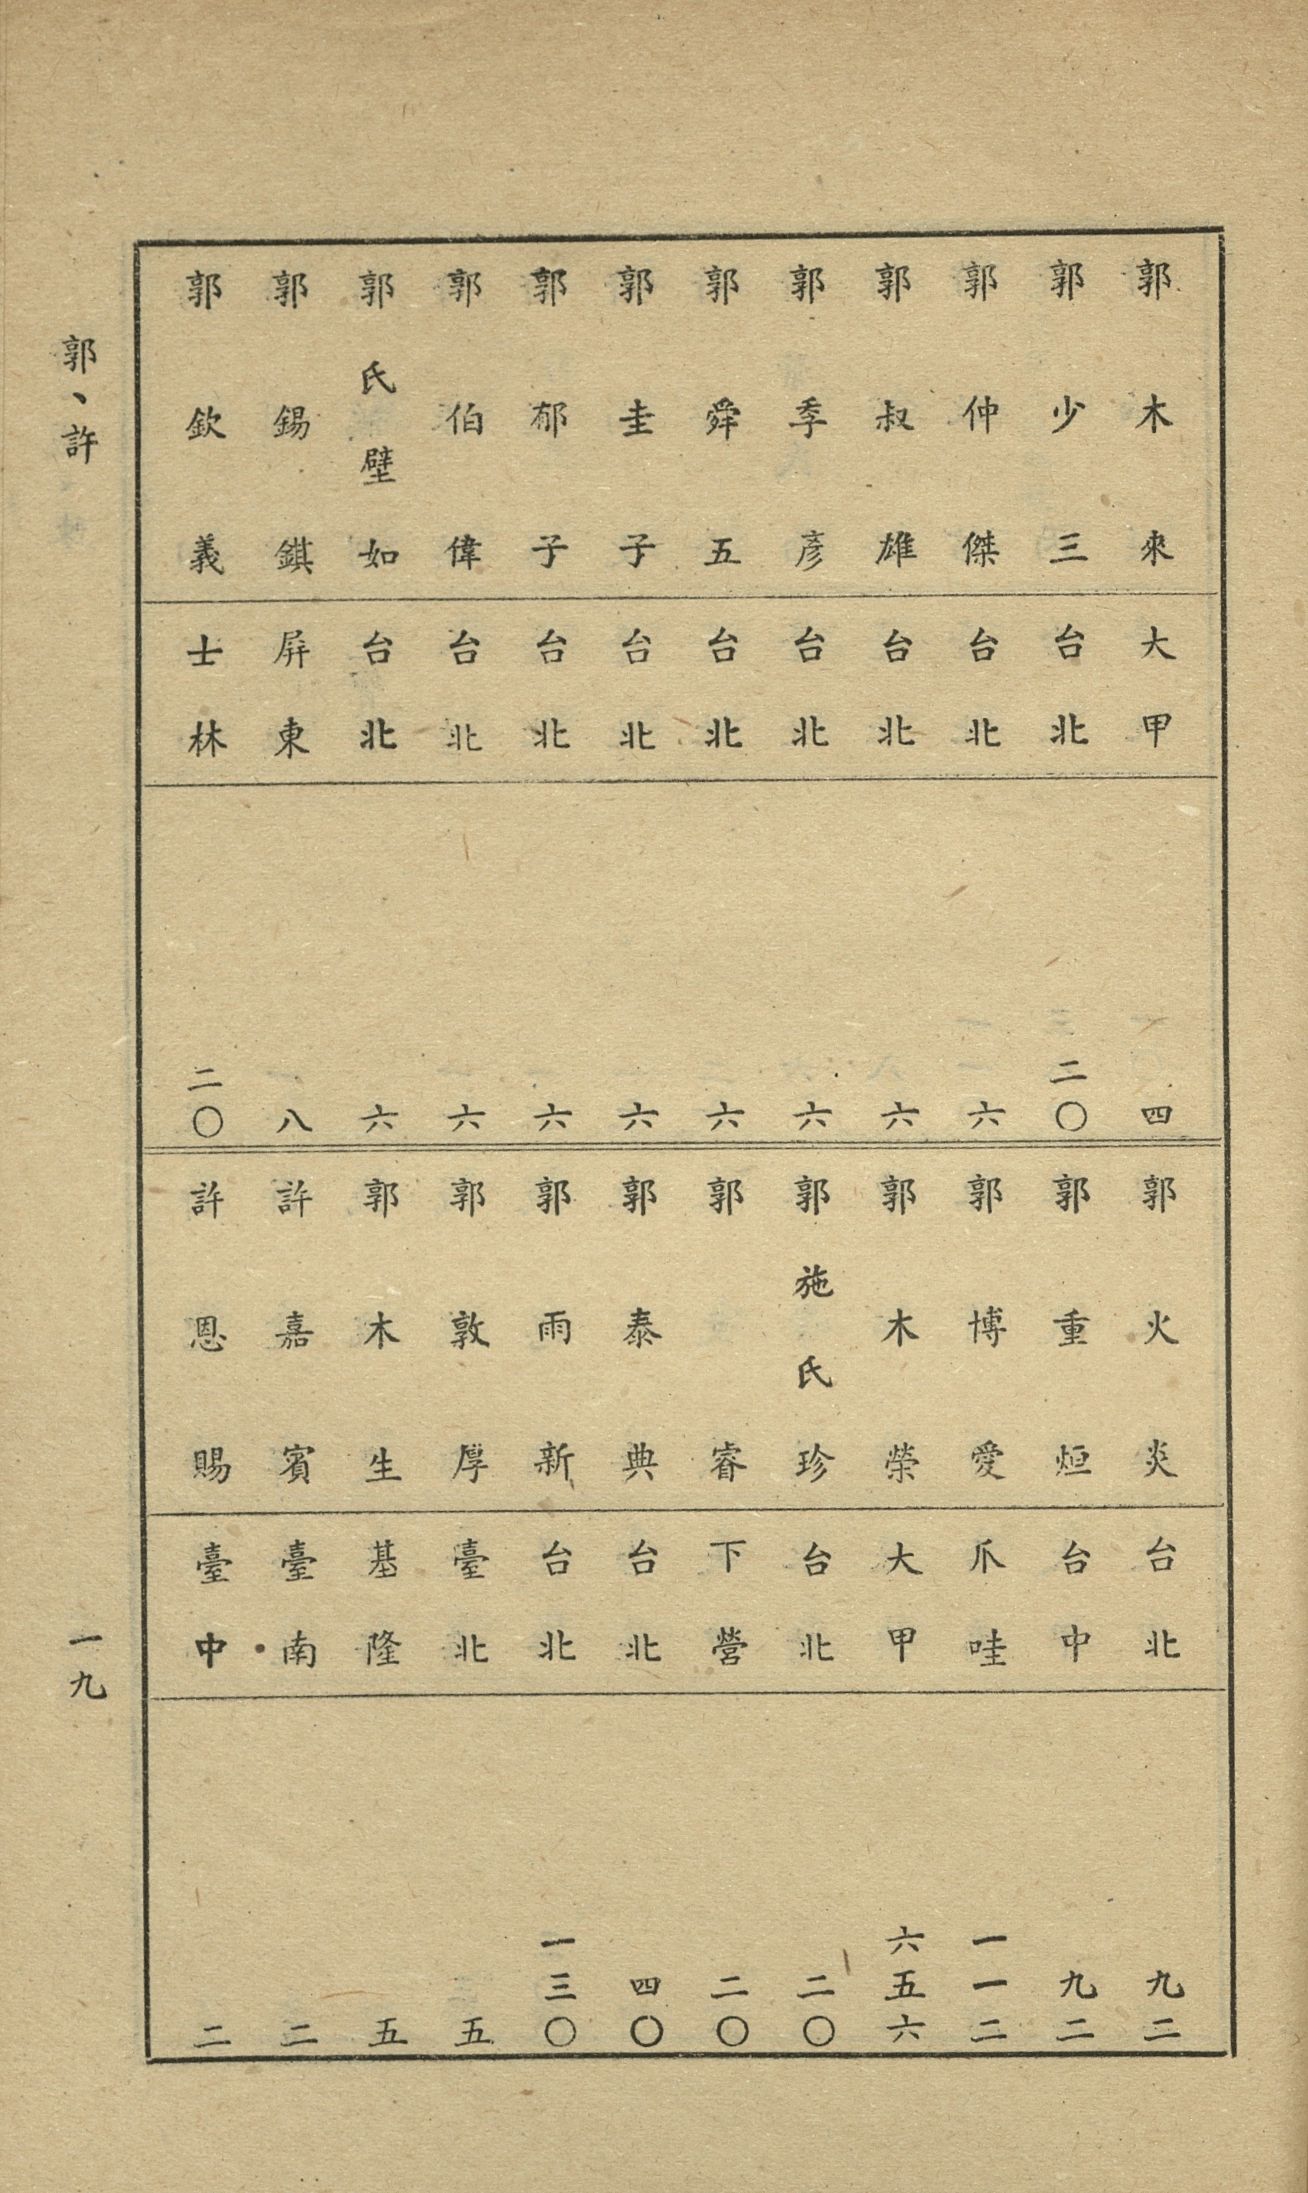 郭木來 大甲 四
郭少三 台北 二〇
郭仲傑 台北 六
郭叔雄 台北 六
郭季彥 台北 六
郭舜五 台北 六
郭圭子 台北 六
郭郁子 台北 六
郭伯偉 台北 六
郭氏壁如 台北 六
郭錫錤 屏東 八
郭欽義 士林 二〇
郭火炎 台北 九二
郭重烜 台中 九二
郭博愛 爪哇 一一二
郭木榮 大甲 六五六
郭施氏珍 台北 二〇
郭睿 下營 二〇
郭泰典 台北 四〇
郭雨新 台北 一三〇
郭敦厚 臺北 五
郭木生 基隆 五
許嘉賓 臺南 二
許恩賜 臺中 二
郭、許
一九